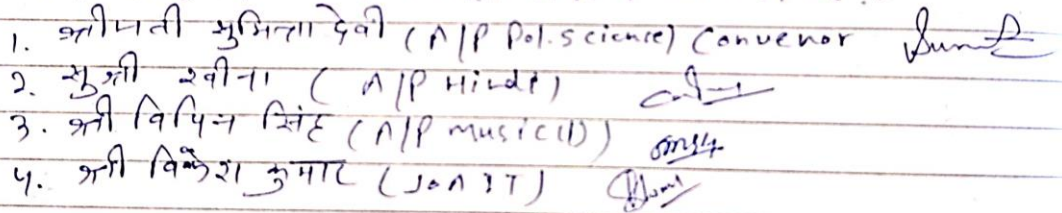 1. श्रीमती सुमित्रा देवी (A/P Pol.science) Convenor
2. सुश्री रवीना (A/P Hindi)
3. श्री विपिन सिंह (A/P music(I))
4. श्री विकेश कुमार (JOA IT)